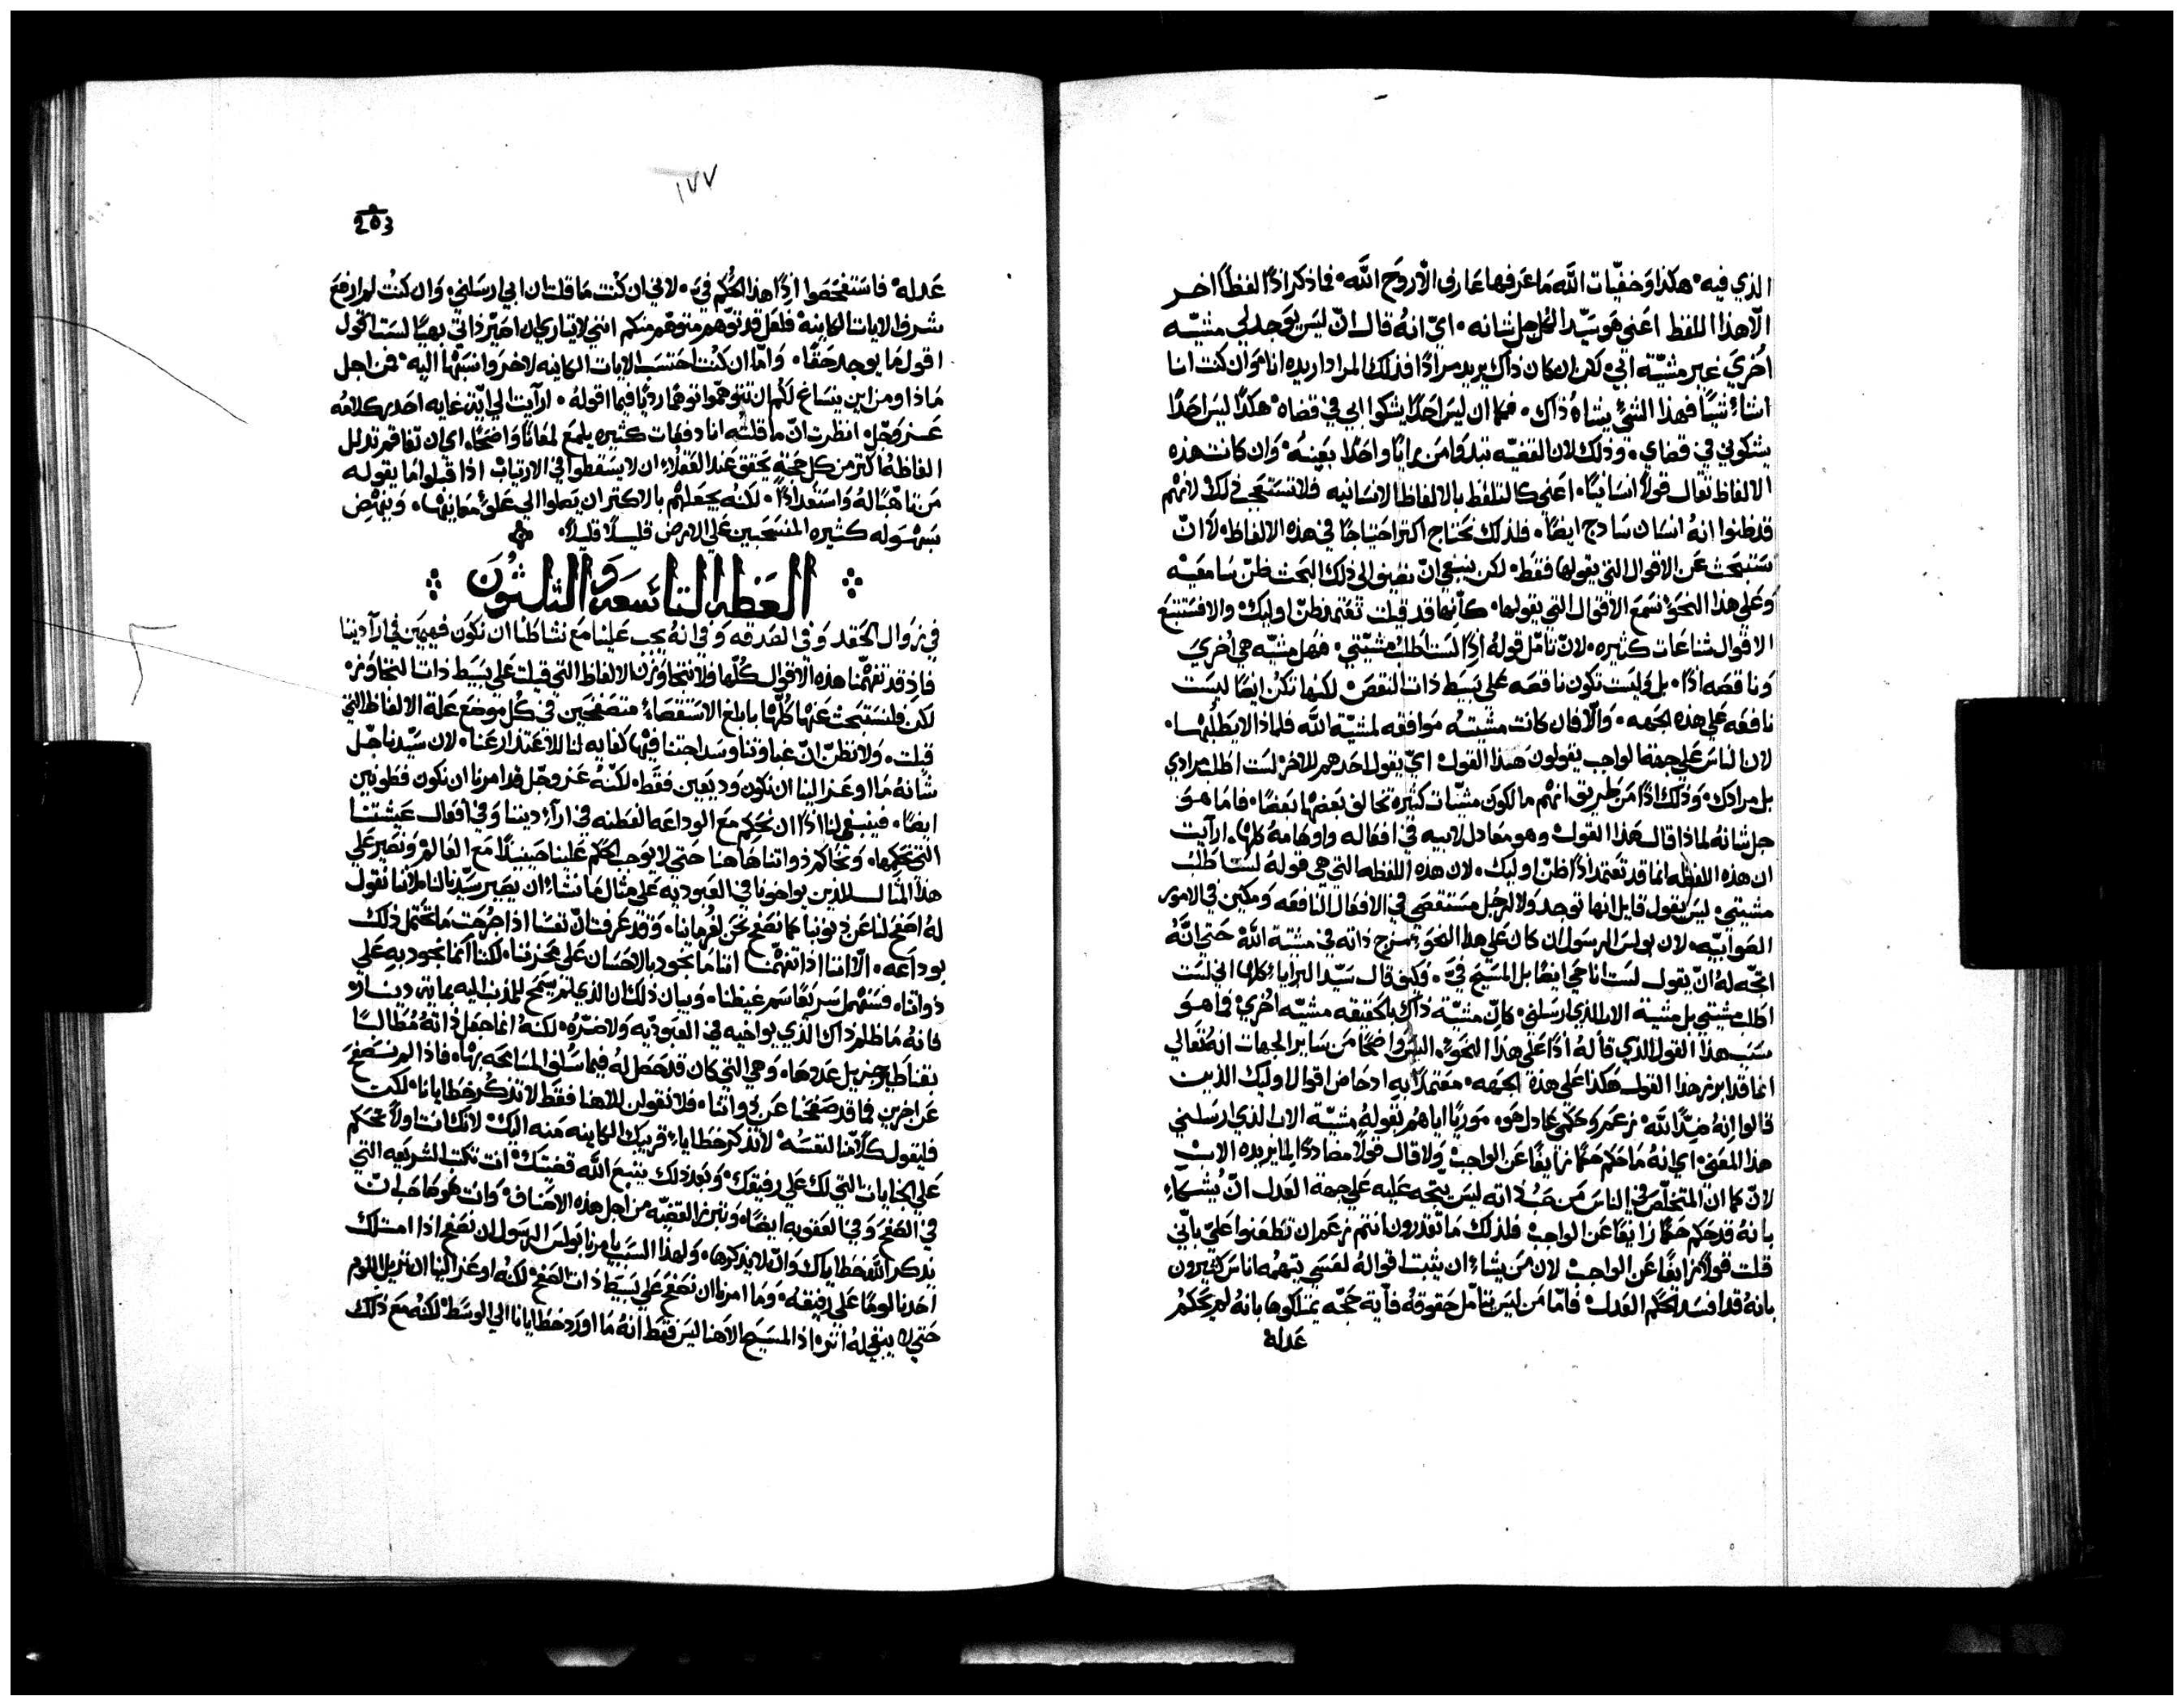 الذي فيه هكذا وخفيّات اللّه ما عرفها عارف الّا روح اللّه فاذكر اذًا لفظًا اخر
الّا هذا اللفظ اعني هو سيّد الكل جل شانه اي انهُ قال انّ ليس يوجد لي مشيّه
اخري غير مشيّة ابي لكن ان كان ذاك يريد مرادًا فذلك المراد اريده انا هو وان كنت انا
اشاء شيًا فهذا الشي يشاهُ ذاك فكما ان ليس احدًا يشكوا ابي في قضاه هكذا ليس احدًا
يشكوني في قضاي وذلك لان القضيّه تبدوا من راينا واحدًا بعينهُ وان كانت هذه
الالفاظ تقال قولًا انسانيًا اعني كالتلفظ بالالفاظ الانسانيه فلا تستعجب ذلك لانهم
قد ظنوا انهُ انسان سادج ايضًا فلذلك نحتاج اكتر احتياجًا في هذه الالفاظ لا انّ
نستبحث عن الاقوال التي يقولها فقط لكن ينبغي انّ نضيف الي ذلك البحث ظنّ سامعيه
وعلي هذا النحو نسمع الاقوال التي يقولها كانّها قد قيلت تعتمد ظنّ اوليك والا فستتبع
الاقوال شناعات كثيره لان تامّل قولهُ اذًا لست اطلب مشيّتي فهل مشيّه هي اخري
وناقصه اذًا بل وليست تكون ناقصه علي بسيط ذات النقص لكنها تكن ايضًا ليست
نافعه علي هذه الجهه والّا فان كانت مشيته موافقه لمشيّة اللّه فلماذا لا يطلبها
لان الناس علي جهة الواجب يقولون هذا القول اي يقول احدهم للاخر لست اطلب مرادي
بل مرادك وذلك اذًا من طريق انهم مالكون مشيّات كثيره تخالف بعضها بعضًا فاما هو
جل شانهُ لماذا قال هذا القول وهو معادل لابيه في افعاله واوهامهُ كلها ارآيت
ان هذه اللفظه انما قد تعتمد اذًا ظنّ اوليك لان هذه اللفظه التي هي قوله لست اطلب
مشيتي ليس يقول قايل انها توجد ولا لرجل مستقصي في الافعال النافعه ومكين في الامور
الصوابيّه لان بولس الرسول ان كان علي هذا النحو يمزج ذاته في مشيّة اللّه حتي انّهُ
اتجه له انّ يقول لست انا حي ايضًا بل المسيح فيّ فكيف قال سيّد البرايا كلها اني لست
اطلب مشيتي بل مشيّة الاب الذي ارسلني كانّ مشيّة ذاك بالحقيقه مشيّه اخري فما هو
سبب هذا القول الذي قاله اذًا علي هذا النحو اليس واضحًا من ساير الجهات انهُ تعالي
انما قد ابرز هذا القول هكذا علي هذه الجهه معتمدًا به ادحاض اقوال اوليك الذين
قالوا انهُ ضدًا للّه زعم وحكمي عادل هو موريًا اياهم بقوله مشيّة الاب الذي ارسلني
هذا المعني اي انهُ ما حكم حكمًا زايغًا عن الواجب ولا قال قولًا مضادًا لما يريده الاب
لانّ كما ان المتخلّص في الناس من ذاته ليس يتجه عليه علي جهة العدل انّ يُشكاء
بانهُ قد حكم حكمًا زايغًا عن الواجب فلذلك ما تقدرون انتم زعم ان تطعنوا عليّ بانّي
قلت قولًا زايغًا عن الواجب لان من يشاء ان يثبت اقوالهُ لنفسي يتهمهُ اناس كثيرون
بانهُ قد افسد الحكم العدل فامّا من ليس يتامّل حقوقه فاية حجّه تمتلكوها بانهُ لم يحكم
عدله
١٧٧
203
عدله فاستفحصوا اذًا هذا الحكم فيّ لاني ان كنت ما قلت ان ابي ارسلني وان كنت لم ارفع
شرف الايات الكاينه فلعل قد توّهم متوهّم منكم انني لايثاري ان اصيّر ذاتي بهيًا لست اقول
اقول ما يوجد حقًا واما ان كنت احتسب الايات الكاينه لاخر وانسبها اليه فمن اجل
ماذا ومن اين يتساغ لكم ان تتوهموا توهمًا رديًا فيما اقولهُ ارآيت الي ايّة غايه اصدر كلامه
عز وجل انظر ان ما قلته انا دفعات كثيره يلمع لمعانًا واضحًا اي ان تفاقم تدلل
الفاظهُ اكثر من كل حجه يحقق عند العقلاء ان لا يسقطوا في الارتياب اذا قبلوا ما يقوله
من تاهبًا له واستعدادًا لكنه يجعلهم بالاكتر ان يصلوا الي علو معانيها وينهض
بسهوله كثيره المنسحبين علي الارض قليلًا قليلًا
العظه التاسعه والثلثون
في زوال الحقد وفي الصدقه وفي انهُ يجب علينا مع نشاطنا ان نكون فهيمين في ارآ ديننا
فاذ قد تفهّمنا هذه الاقوال كُلّها ولا نتجاوزن الالفاظ التي قيلت علي بسيط ذات التجاوز
لكن فلنستبحث عنها كلّها بابلغ الاستقصاء متصفحين في كُل موضع علة الالفاظ التي
قيلت ولا نظنّ انّ غباوتنا وسداجتنا فيها كفايه لنا للاعتدار عنا لان سيّدنا جل
شانهُ ما اوعز الينا ان نكون وديعين فقط لكنّه عز وجل قد امرنا ان نكون فطونين
ايضًا فينبغي لنا اذًا ان نحكم مع الوداعه الفطنه في ارآ ديننا وفي افعال عيشتنا
التي نحكمها ونحاكم ذواتنا هاهنا حتي لا يوجب الحكم علينا حينيذًا مع العالم ونصير علي
هذا المثال للذين يواخونا في العبوديه علي مثال ما نشاء ان يصير سيّدنا لنا لاننا نقول
لهُ اصفح لنا عن ذنوبنا كما نصفح نحن لغرماينا وقد عرفت انّ نفسًا اذا جرحت ما تحتمل ذلك
بوداعه الّا اننا اذا تفهّمنا اننا ما نجود بالاحسان علي محزننا لكننا انما نجود به علي
ذواتنا فسنهمل سريعًا سم غيظنا وبيان ذلك ان الذي لم يسمح للمذنب اليه بماية دينار
فانهُ ما ظلم ذاك الذي يواخيه في العبوديه ولا ضرّه لكنهُ انما جعل ذاتهُ مُطالبًا
بقناطير جزيل عددها وهي التي كان قد حصل لهُ فيما سلف المسامحه بها فاذا لم نصفح
عن اخرين فما قد صفحنا عن ذواتنا فلا نقولن لالاهنا فقط لا تذكر خطايانا لكن
فليقول كلًا منا لنفسه لا تذكر خطايا قريبك الكاينه منه اليك لانك انت اولًا تحكم
علي الجنايات التي لك علي رفيقك وبعد ذلك يتبع اللّه قضيتك انت تكتب الشريعه التي
في الصفح وفي العقوبه ايضًا وتبرز القضيه من اجل هذه الاصناف وانت هو صاحب انّ
يذكر اللّه خطاياك وانّ لا يذكرها ولهذا السبب يامرنا بولس الرسول ان نصفح اذا امتلك
احدنا لومًا علي رفيقهُ وما امرنا ان نصفح علي بسيط ذات الصفح لكنه اوعز الينا ان نزيل اللوم
حتي لا يبقي له اثر اذ المسيح الاهنا ليس فقط انهُ ما اورد خطايانا الي الوسط لكنه مع ذلك